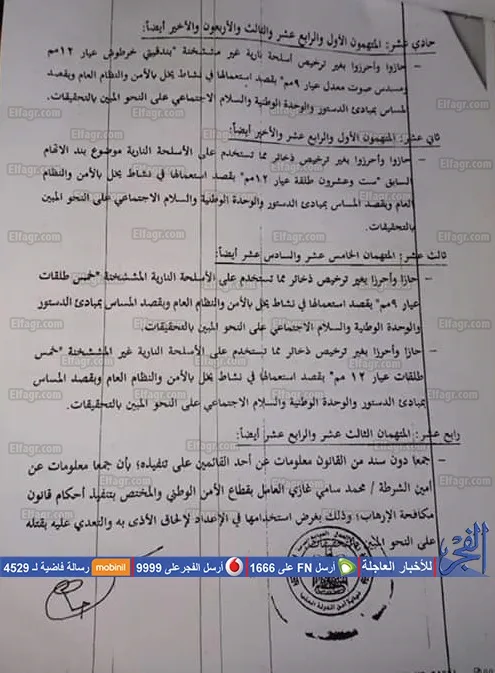 حادي عشر: المتهمون الأول والرابع عشر والثالث والأربعون والأخير أيضاً:
– حازوا وأحرزوا بغير ترخيص أسلحة نارية غير مششخنة "بندقيتي خرطوش عيار ١٢مم
ومسدس صوت معدل عيار ٩مم" بقصد استعمالها في نشاط يخل بالأمن والنظام العام وبقصد
المساس بمبادئ الدستور والوحدة الوطنية والسلام الاجتماعي على النحو المبين بالتحقيقات.
ثاني عشر: المتهمون الأول والرابع عشر والأخير أيضاً:
– حازوا وأحرزوا بغير ترخيص ذخائر مما تستخدم على الأسلحة النارية موضوع بند الاتهام
السابق "ست وعشرون طلقة عيار ١٢مم" بقصد استعمالها في نشاط يخل بالأمن والنظام
العام وبقصد المساس بمبادئ الدستور والوحدة الوطنية والسلام الاجتماعي على النحو المبين
بالتحقيقات.
ثالث عشر: المتهمان الخامس عشر والسادس عشر أيضاً:
– حازا وأحرزا بغير ترخيص ذخائر مما تستخدم على الأسلحة النارية المششخنة "خمس طلقات
عيار ٩مم" بقصد استعمالها في نشاط يخل بالأمن والنظام العام وبقصد المساس بمبادئ الدستور
والوحدة الوطنية والسلام الاجتماعي على النحو المبين بالتحقيقات.
– حازا وأحرزا بغير ترخيص ذخائر مما تستخدم على الأسلحة النارية غير المششخنة "خمس
طلقات عيار ١٢ مم" بقصد استعمالها في نشاط يخل بالأمن والنظام العام وبقصد المساس
بمبادئ الدستور والوحدة الوطنية والسلام الاجتماعي على النحو المبين بالتحقيقات.
رابع عشر: المتهمان الثالث عشر والرابع عشر أيضاً:
– جمعا دون سند من القانون معلومات عن أحد القائمين على تنفيذه؛ بأن جمعا معلومات عن
أمين الشرطة / محمد سامي غازي العامل بقطاع الأمن الوطني والمختص بتنفيذ أحكام قانون
مكافحة الإرهاب؛ وذلك بغرض استخدامها في الإعداد لإلحاق الأذى به والتعدي عليه بقتله
على النحو المبين
الفجر
للأخبار العاجلة أرسل FN على 1666 أرسل الفجر على 9999 mobinil رسالة فاضية لـ 4529
Elfagr.com